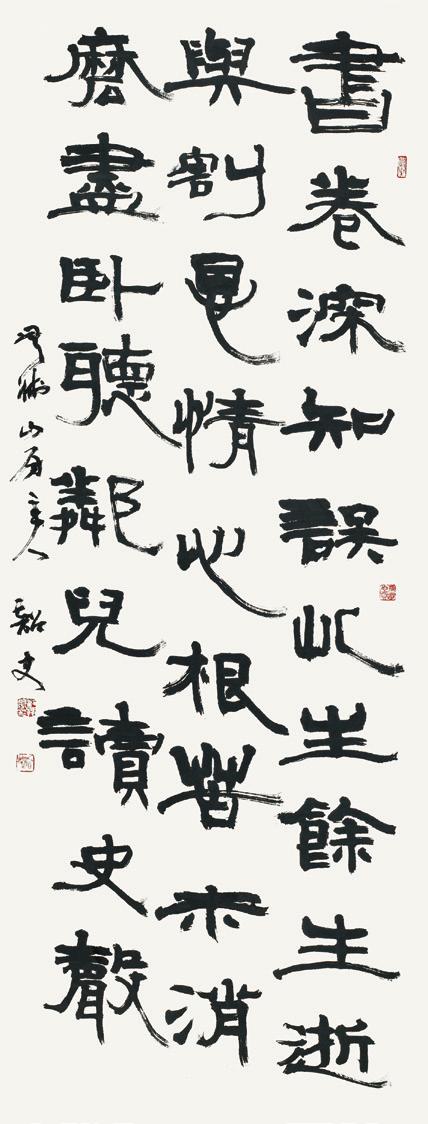 書卷深知誤此生餘生逝
與割恩情心根苦未消
磨盡臥聽鄰兒讀史聲
山房主人